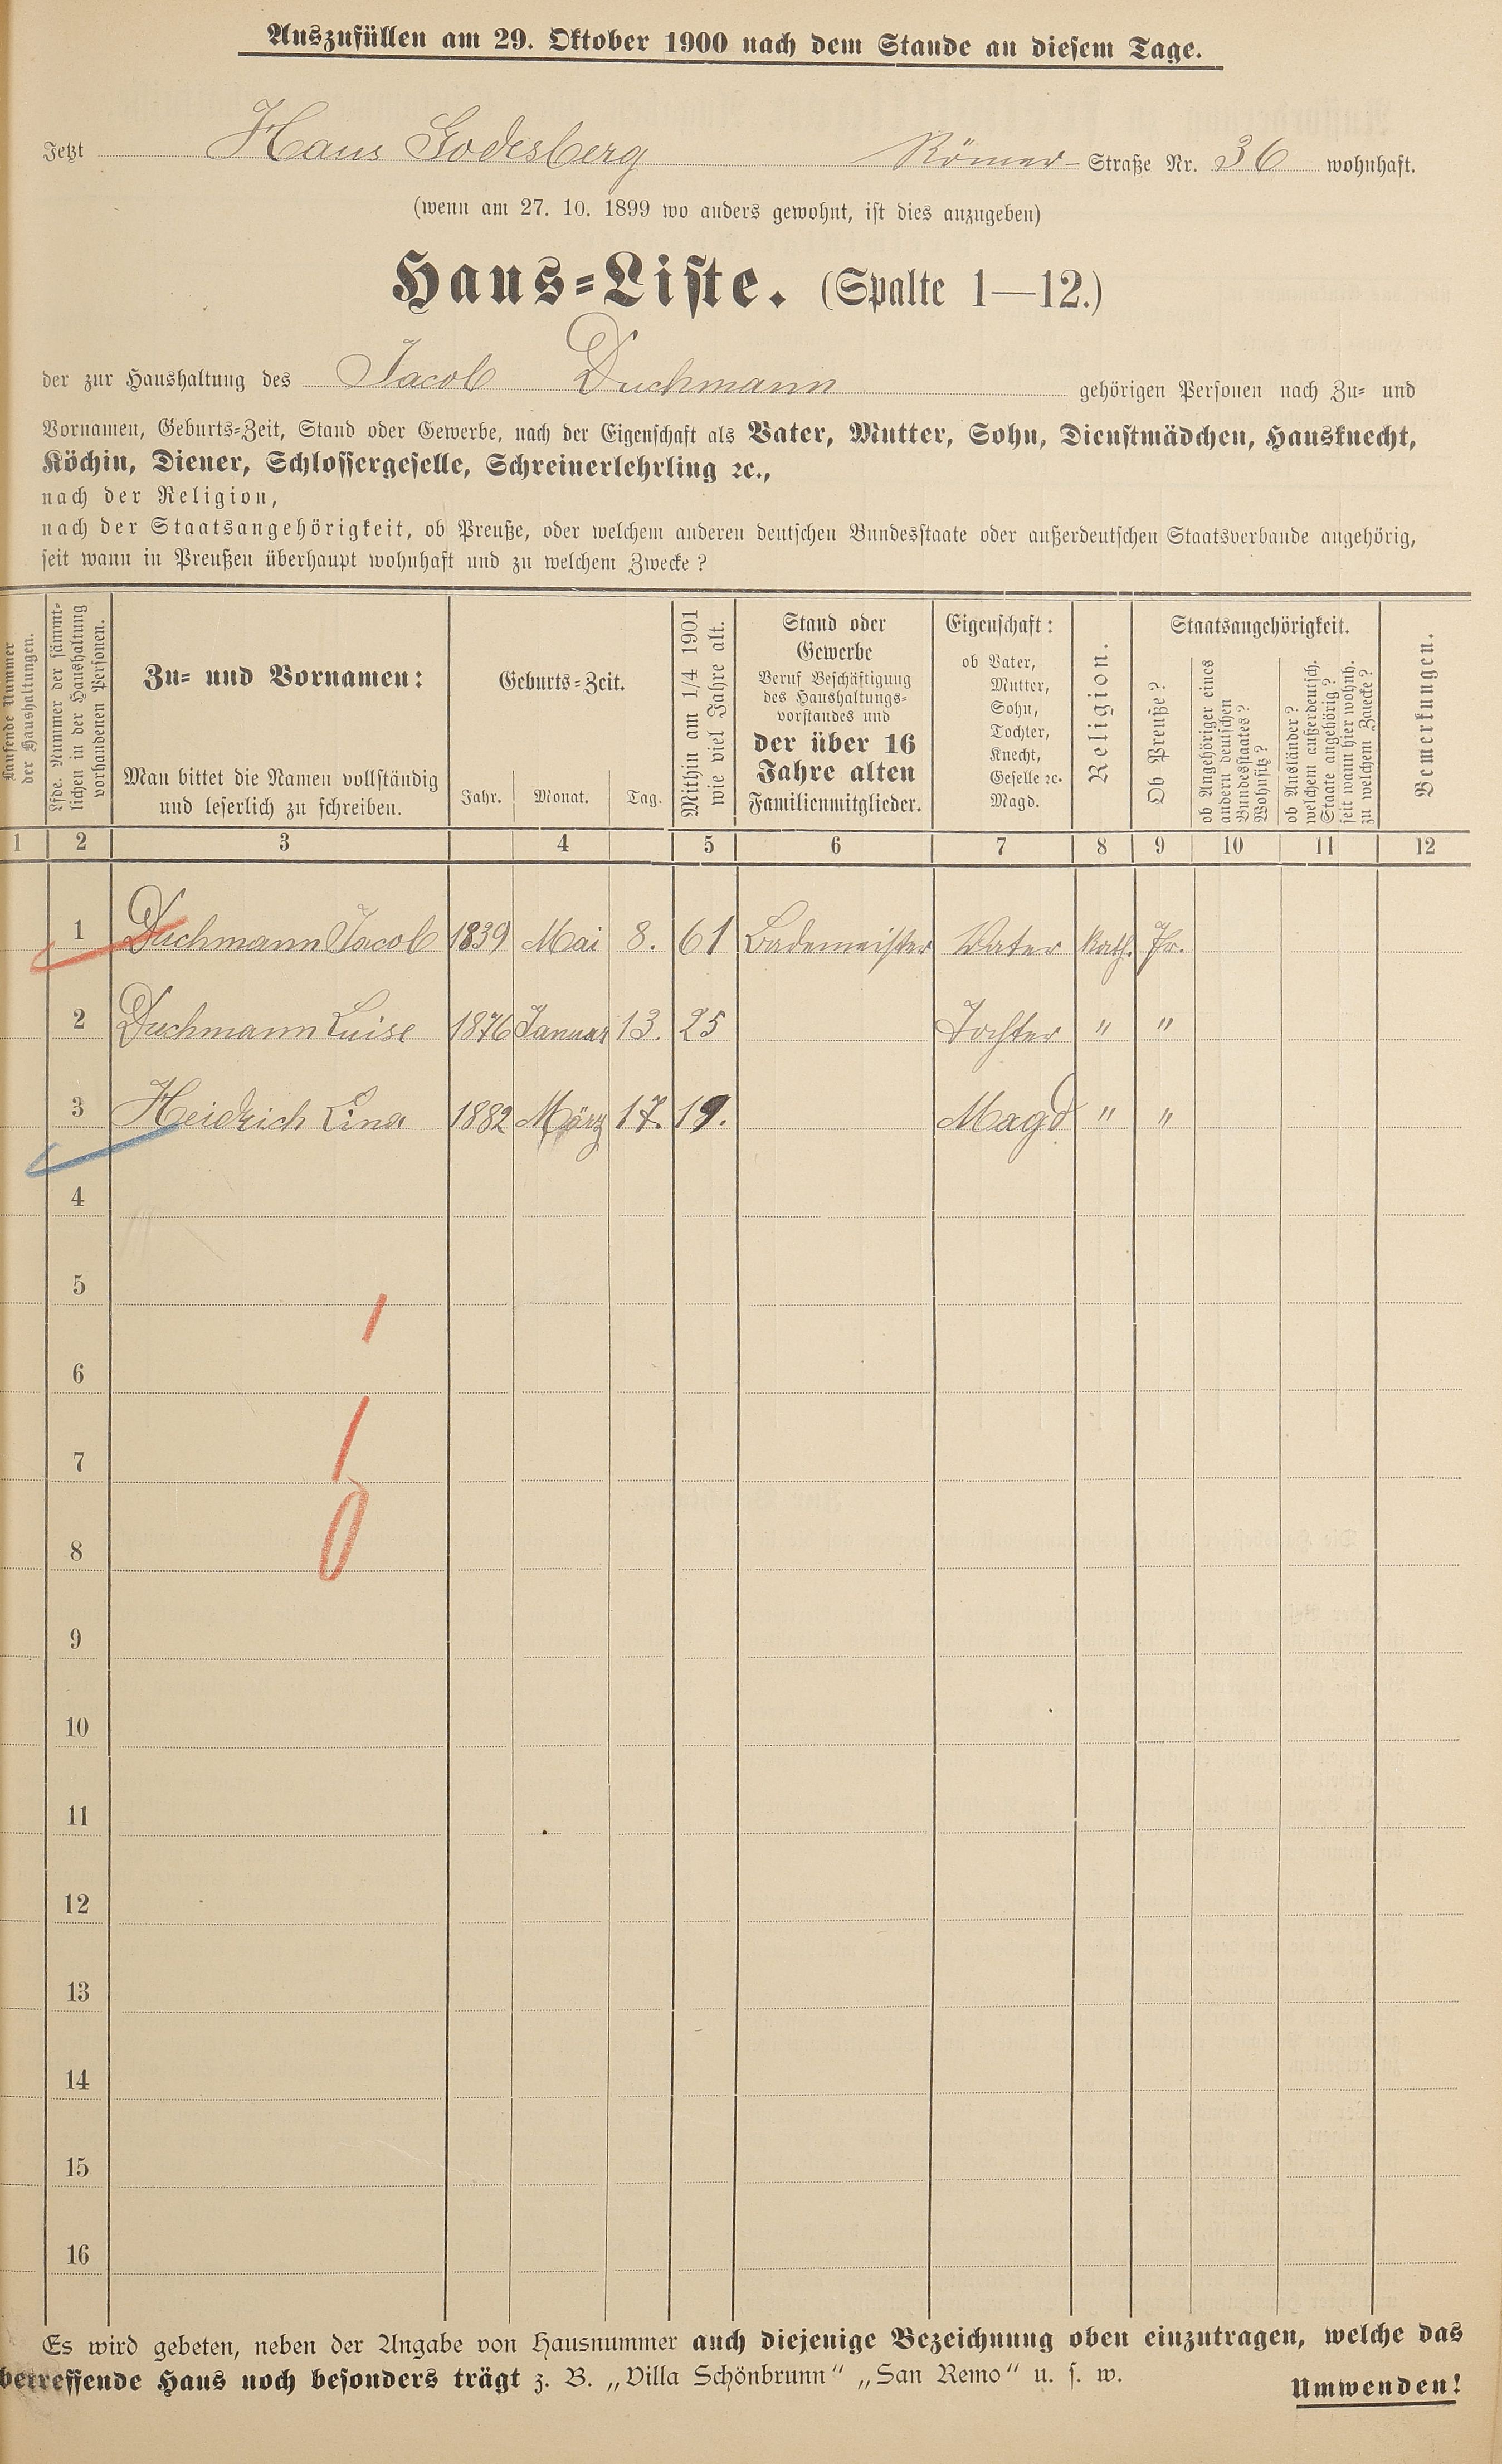 Auszufüllen am 29. Oktober 1900 nach dem Stande an diesem Tage.
Jetzt Haus Godesberg Römer- Straße Nr. 36 wohnhaft.
(wenn am 27. 10. 1899 wo anders gewohnt, ist dies anzugeben)
Haus=Liste. (Spalte 1—12.)
der zur Haushaltung des Jacob Duchmann gehörigen Personen nach Zu- und
Vornamen, Geburts=Zeit, Stand oder Gewerbe, nach der Eigenschaft als Vater, Mutter, Sohn, Dienstmädchen, Hausknecht,
Köchin, Diener, Schlossergeselle, Schreinerlehrling ꝛc.,
nach der Religion,
nach der Staatsangehörigkeit, ob Preuße, oder welchem anderen deutschen Bundesstaate oder außerdeutschen Staatsverbande angehörig,
seit wann in Preußen überhaupt wohnhaft und zu welchem Zwecke?
Laufende Nummer
der Haushaltungen.
Lfde. Nummer der sämmt-
lichen in der Haushaltung
vorhandenen Personen.
Zu= und Vornamen:
Man bittet die Namen vollständig
und leserlich zu schreiben.
Geburts=Zeit.
Jahr. Monat. Tag.
Mithin am 1/4 1901
wie viel Jahre alt.
Stand oder
Gewerbe
Beruf Beschäftigung
des Haushaltungs-
vorstandes und
der über 16
Jahre alten
Familienmitglieder.
Eigenschaft:
ob Vater,
Mutter,
Sohn,
Tochter,
Knecht,
Geselle ꝛc.
Magd.
Religion.
Staatsangehörigkeit.
Ob Preuße?
ob Angehöriger eines
andern deutschen
Bundesstaates?
Wohnsitz?
ob Ausländer?
welchem außerdeutsch.
Staate angehörig?
seit wann hier wohnh.
zu welchem Zwecke?
Bemerkungen.
1 2 3 4 5 6 7 8 9 10 11 12
1 Duchmann Jacob 1839 Mai 8. 61 Bademeister Vater Kath. Pr.
2 Duchmann Luise 1876 Januar 13. 25 Tochter " "
3 Heidrich Lina 1882 März 17. 19. Magd " "
4
5
6
7
8
9
10
11
12
13
14
15
16
Es wird gebeten, neben der Angabe von Hausnummer auch diejenige Bezeichnung oben einzutragen, welche das
betreffende Haus noch besonders trägt z. B. „Villa Schönbrunn" „San Remo" u. s. w.
Umwenden!